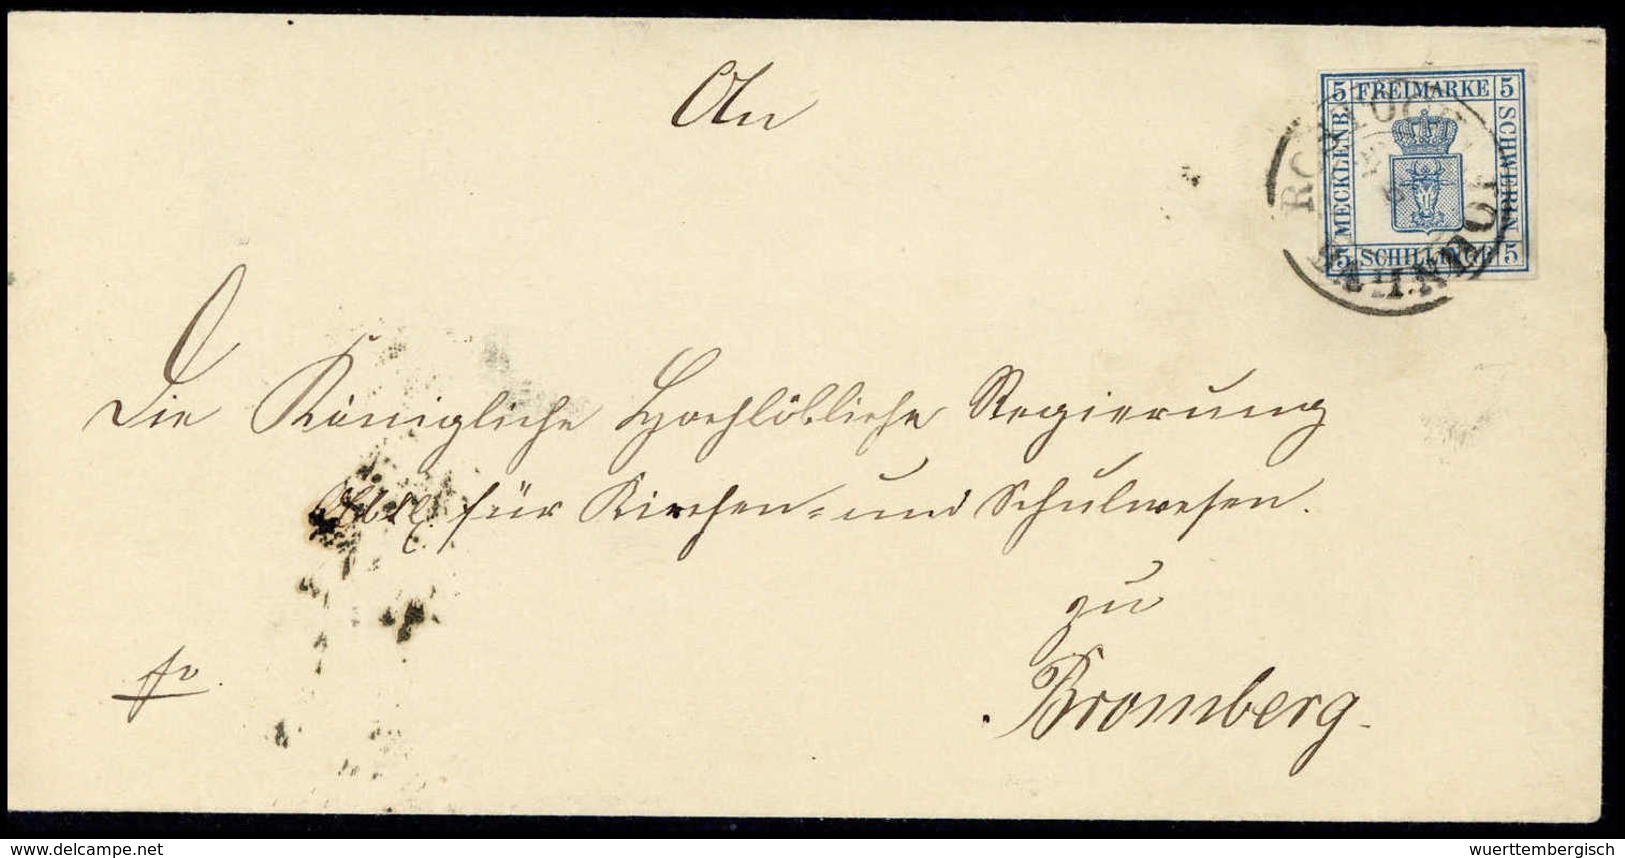 An
5 FREIMARKE 5
MECKLENB.
SCHWERIN
5 SCHILLINGE 5
ROSTOCK
BAHNHOF
Die Königliche Hochlöbliche Regierung
Abth. für Kirchen- und Schulwesen.
zu
fr.
Bromberg.
www.delcampe.net
wuerttembergisch